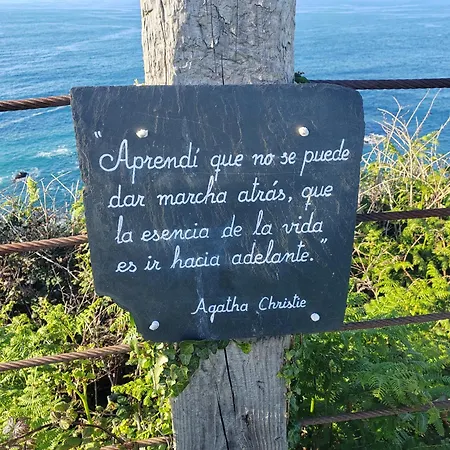 "Aprendí que no se puede
dar marcha atrás, que
la esencia de la vida
es ir hacia adelante."
Agatha Christie